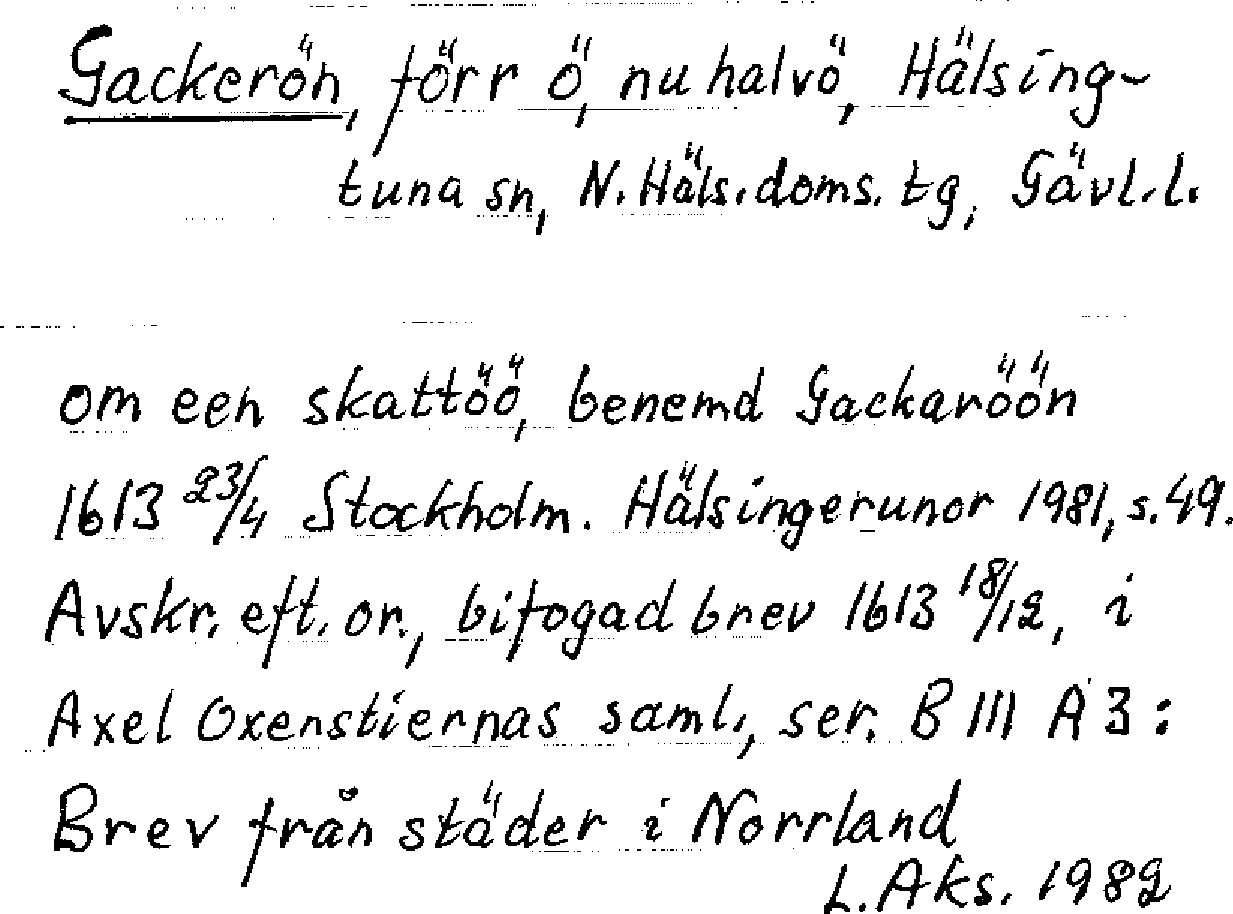 Gackerön, förr ö, nu halvö, Hälsing-
tuna sn, N. Häls. doms. tg, Gävl. l.
om een skattöö, benemd Gackaröön
1613 23/4 Stockholm. Hälsingerunor 1981, s. 49.
Avskr. eft. or., bifogad brev 1613 18/12, i
Axel Oxenstiernas saml., ser. B III A 3:
Brev från städer i Norrland
L. Aks. 1982